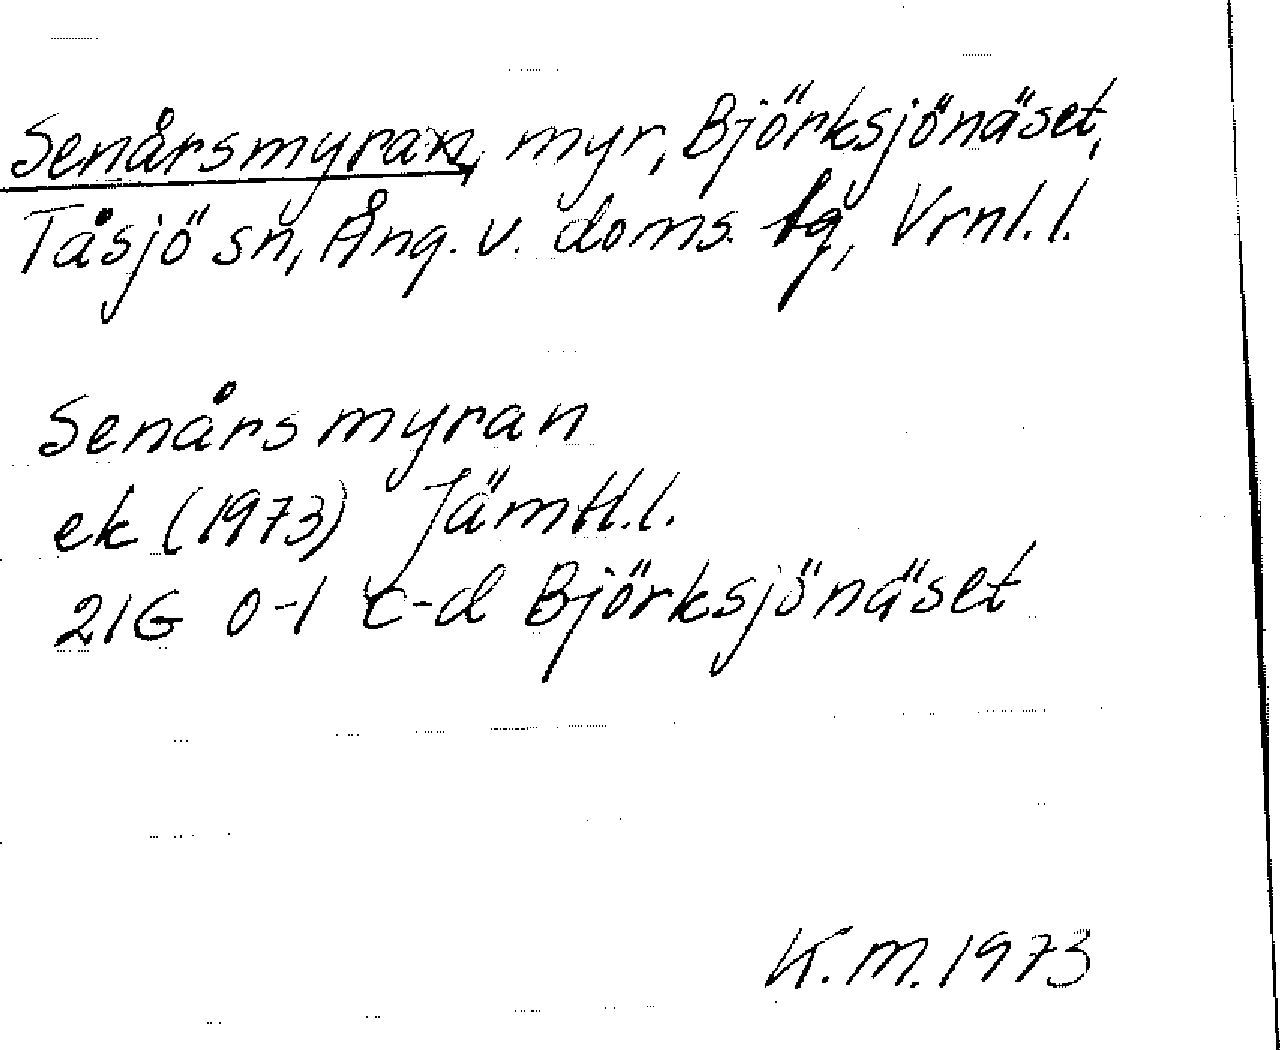 Senårsmyran, myr, Björksjönäset,
Tåsjö sn, Ång. v. doms. fg, Vrnl.l.
Senårsmyran
ek (1973) Jämtl.l.
21G 0-1 c-d Björksjönäset
K.M. 1973